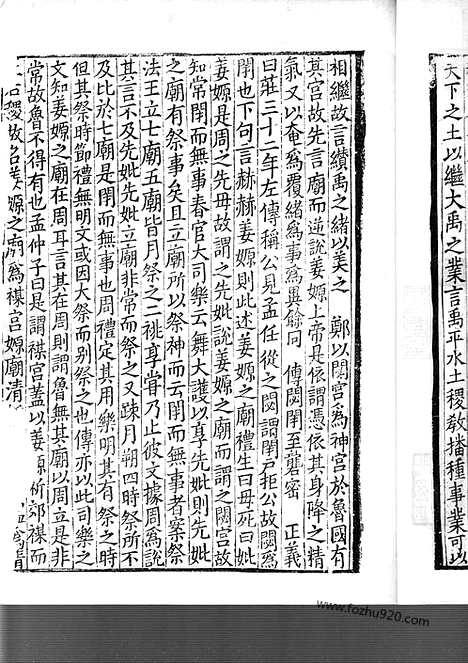 天下之土以繼大禹之業言禹平水土稷教播種事業可以
相繼故言纘禹之緒以美之　鄭以閟宮為神宮於魯國有
其宮故先言廟而逆說姜嫄上帝是依謂憑依其身降之精
氣又以奄為覆緒為事為異餘同　傳閟閉至礱密　正義
曰莊三十二年左傳稱公見孟任從之閟謂閉戶拒公故閟為
閉也下句言赫赫姜嫄則此述姜嫄之廟禮生曰母死曰妣
姜嫄是周之先母故謂之先妣說姜嫄之廟而謂之閟宮故
知常閉而無事春官大司樂云舞大護以享先妣則先妣
之廟有祭事矣且立廟所以祭神而云閉而無事者案祭
法王立七廟五廟皆月祭之二祧享嘗乃止彼文據周為說
其言不及先妣先妣立廟非常而祭之又疎月朔四時祭所不
及比於七廟是閉而無事也周禮定其用樂明其有祭之時
但其祭時節禮無明文或因大祭而別祭之也傳亦以此司樂之
文知姜嫄之廟在周耳言其在周則謂魯無其廟以周立是非
常故魯不得有也孟仲子曰是謂禖宮蓋以姜嫄祈郊禖而
后稷故名姜嫄之廟為禖宮嫄廟清
www.fozhu920.com